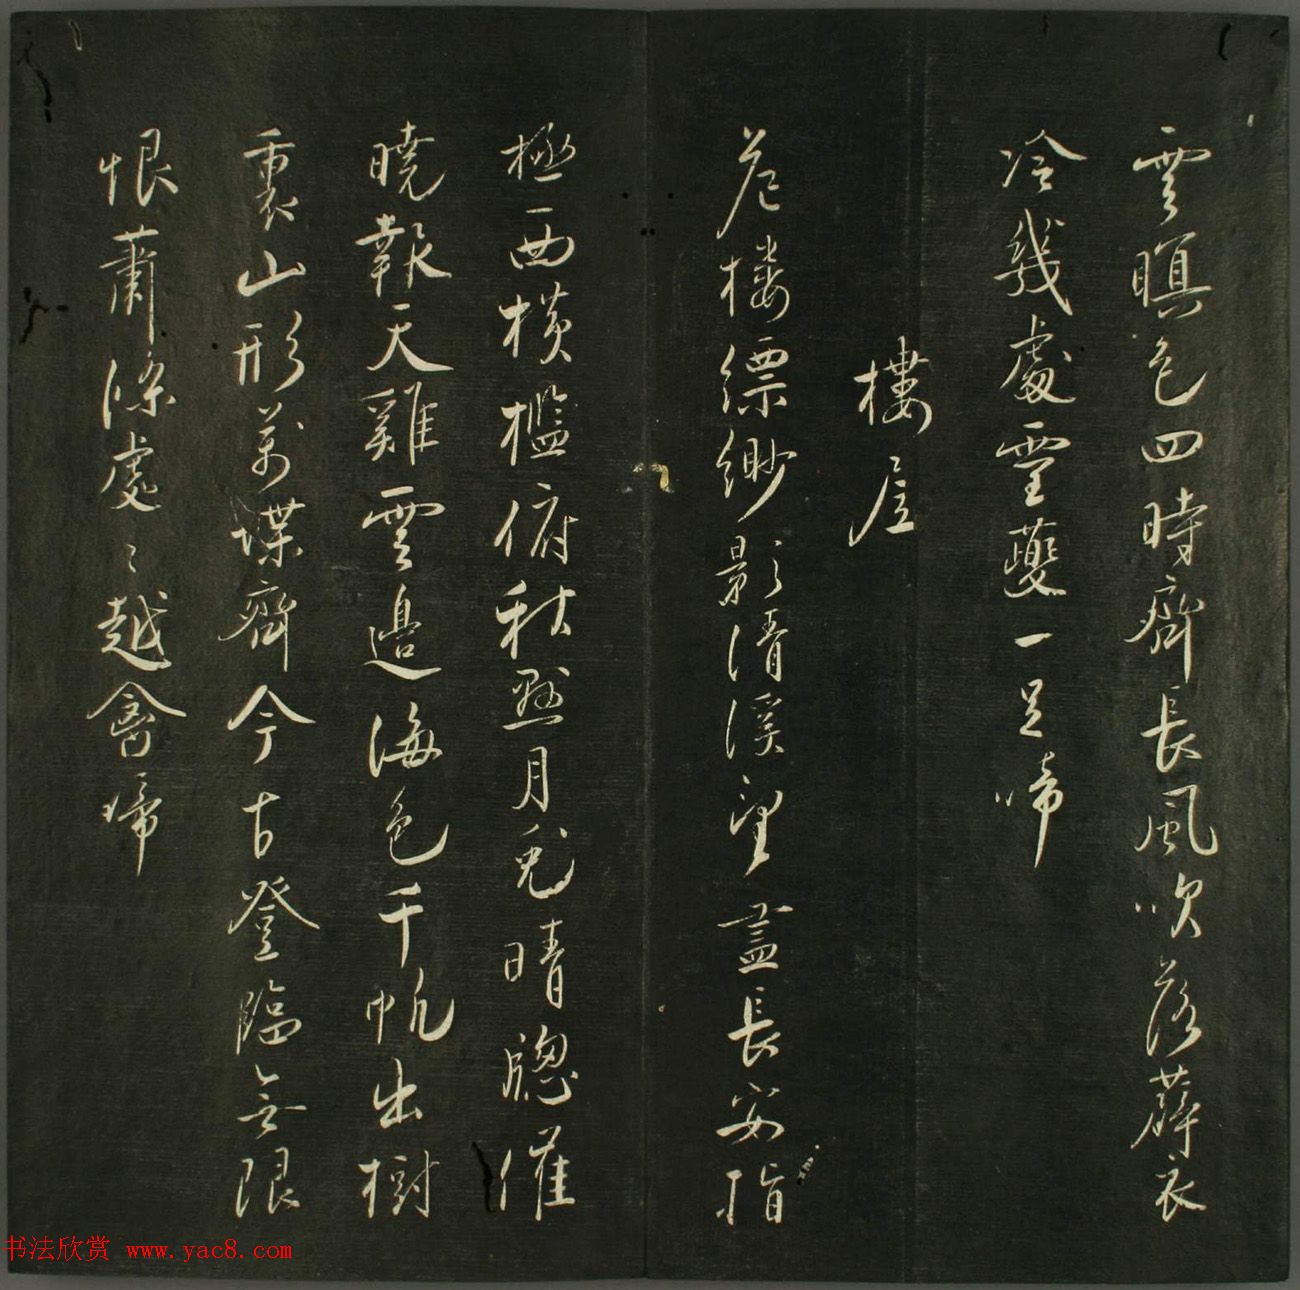 雲暝色四時齊長風吹落薜衣
冷幾處靈夔一足啼
樓居
危樓縹緲影清溪望盡長安指
極西橫檻俯秋懸月兔晴牕催
曉報天雞雲邊海色千帆出樹
裏山形萬堞齊今古登臨無限
恨蕭條處〻越禽啼
书法欣赏 www.yac8.com